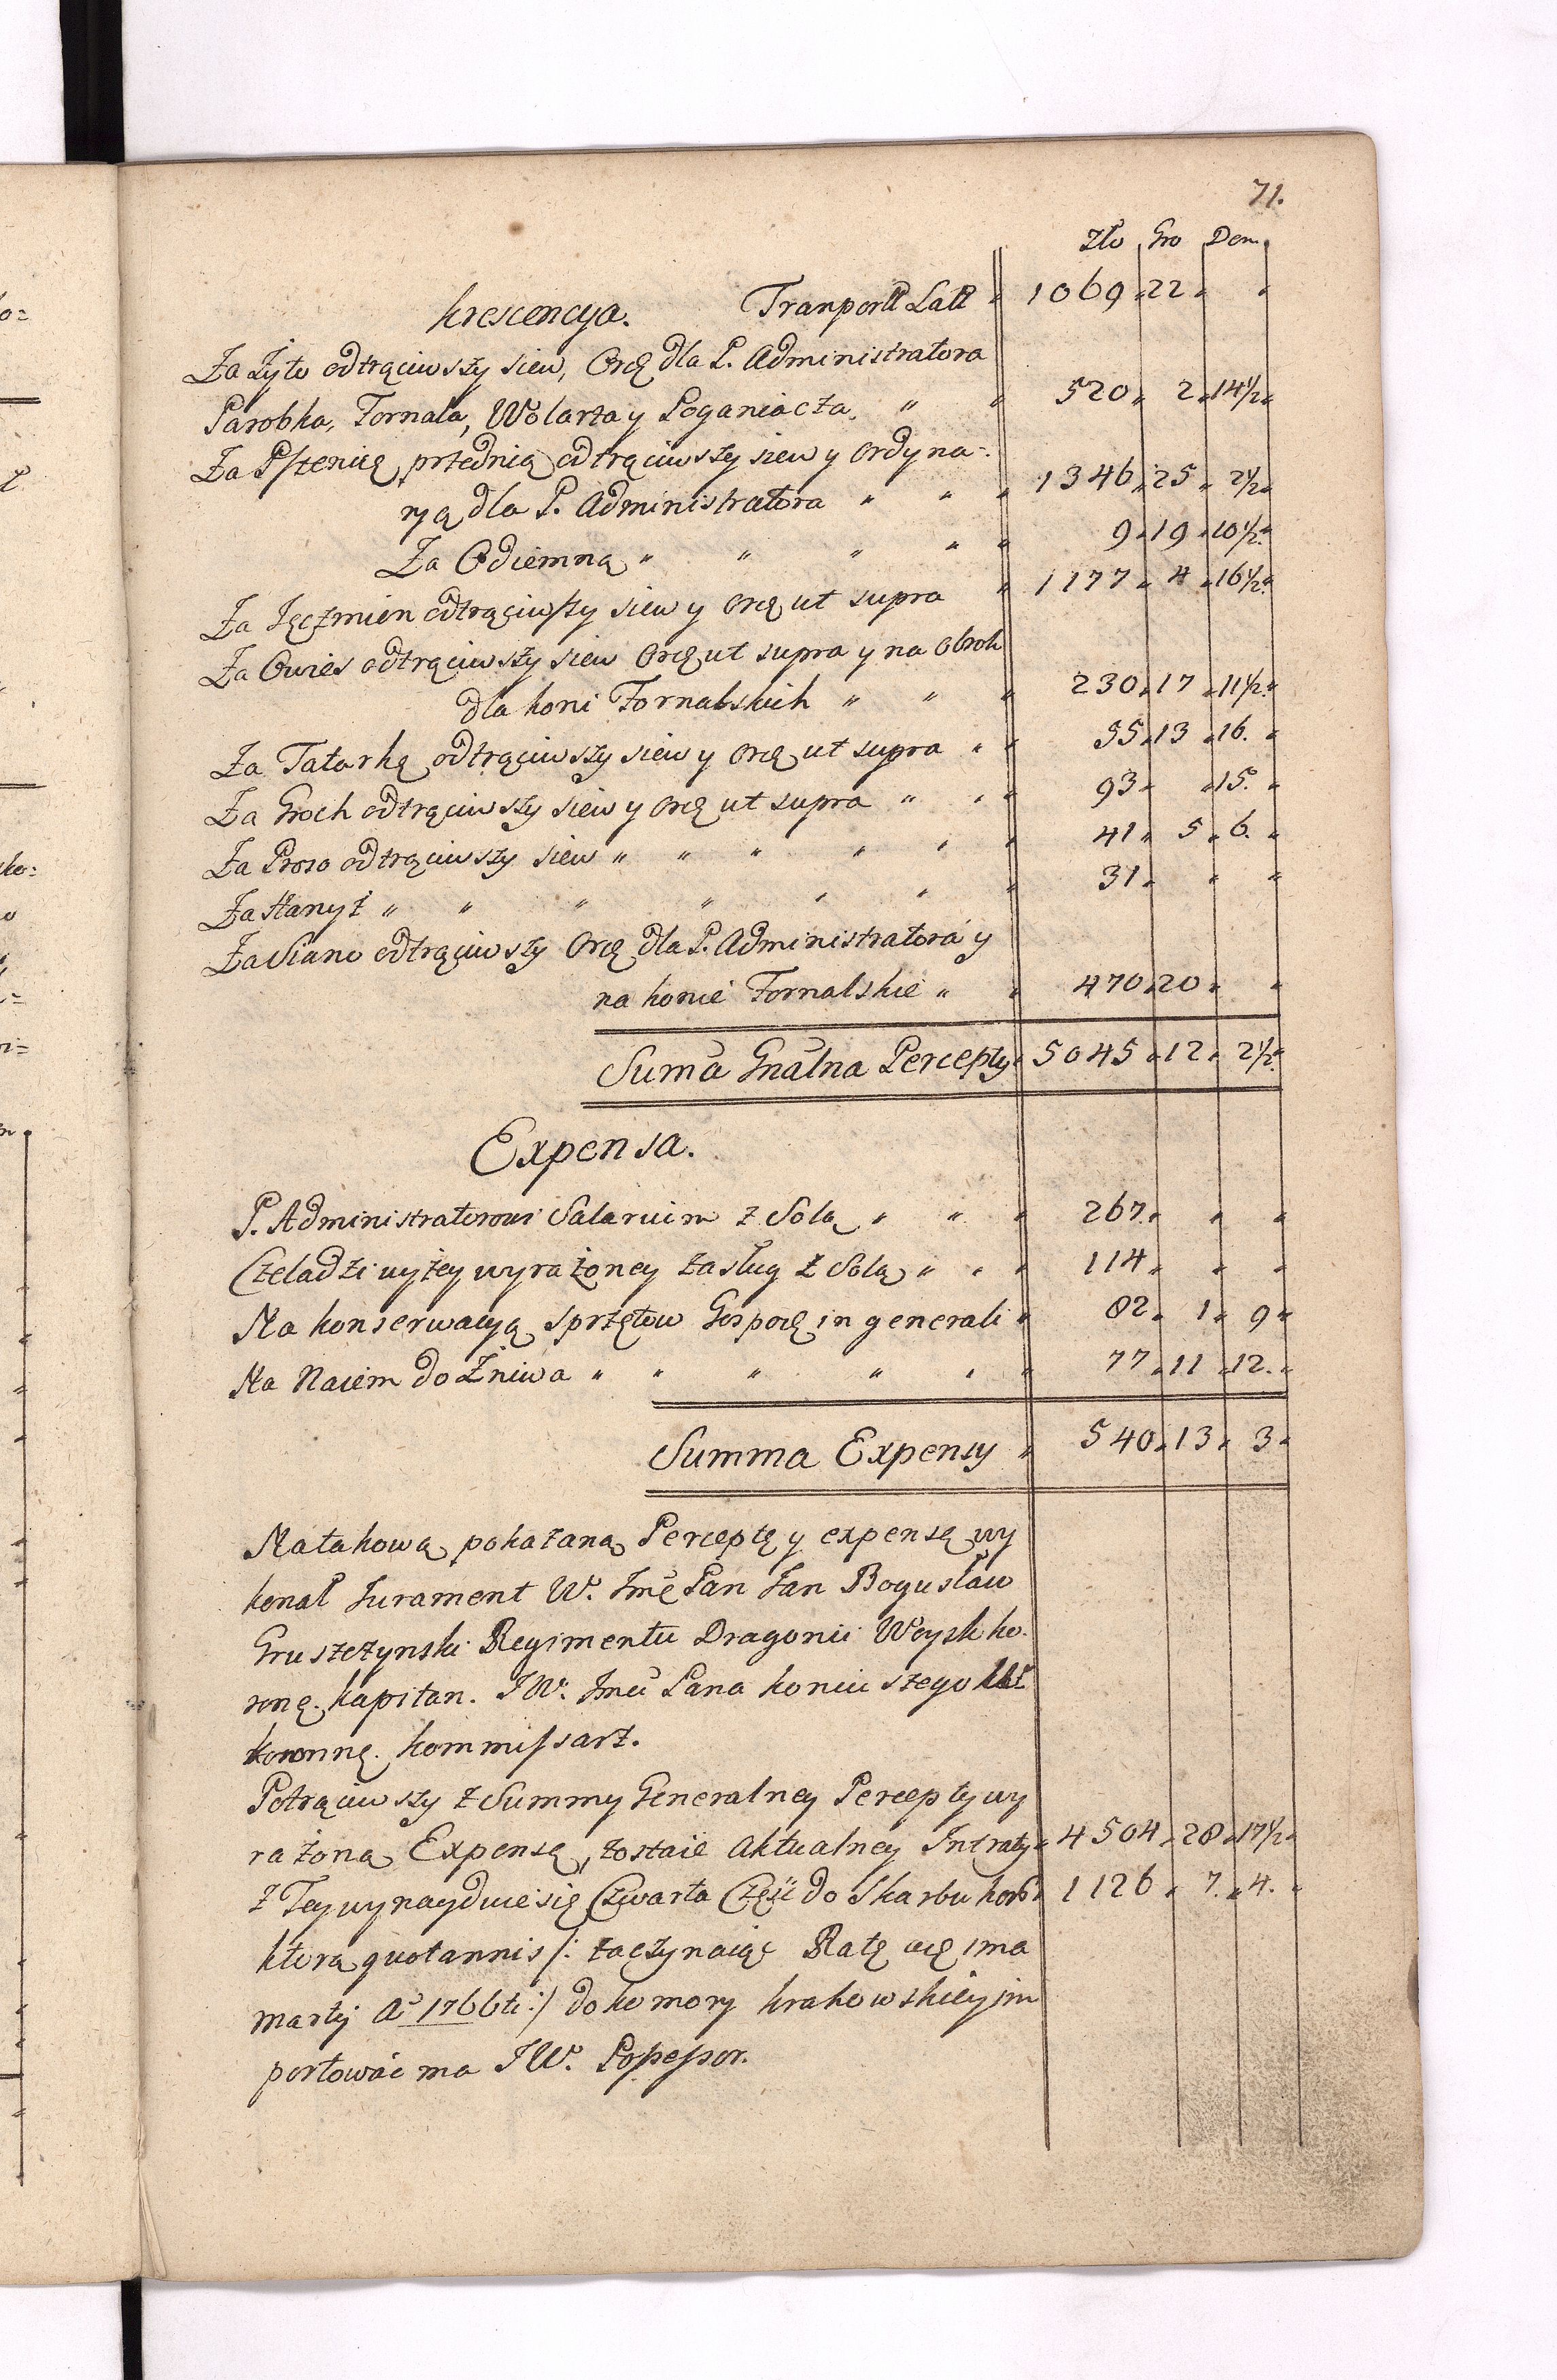 71.
Zło Gro Den.
Krescencya. Tranport Latt " 1069 " 22 " "
Za Żyto odtrąciwszy siew, Orę dla P. Administratora
Parobka, Fornala, Wolarza y Poganiacza " " 520 " 2 " 14 1/2 "
Za Pszenicę przednią odtrąciwszy siew y Ordyna-
ryą dla P. Administratora " " " 1346 " 25 " 2 1/2 "
Za Odiemną " " " " " 9 " 19 " 10 1/2 "
Za Jęczmien odtrąciwszy siew y Orę ut supra " 1177 " 4 " 16 1/2 "
Za Owies odtrąciwszy siew Orę ut supra y na Obrok
dla koni Fornalskich " " " 230 " 17 " 11 1/2 "
Za Tatarkę odtrąciwszy siew y Orę ut supra " " 55 " 13 " 16. "
Za Groch odtrąciwszy siew y Orę ut supra " " " 93 " " 15. "
Za Proso odtrąciwszy siew " " " " " " 41 " 5 " 6. "
Za Hanyż " " " " " " " 31 " " "
Za Siano odtrąciwszy Orę dla P. Administratora y
na konie Fornalskie " " 470 " 20 " "
Suma Gnalna Percepty " 5045 " 12 " 2 1/2 "
Expensa.
P. Administratorowi Salarium z Solą " " " 267 " " "
Czeladzi wyżey wyrażoney zasług z Solą " " " 114 " " "
Na konserwacyą sprzętow Gospoę in generali " 82 " 1 " 9 "
Na Naiem do Żniwa " " " " " " 77 " 11 " 12. "
Summa Expensy " 540 " 13 " 3 "
Na takową pokazaną Perceptę y expensę wy
konał Jurament W. Jmć Pan Jan Bogusław
Gruszczynski Regimentu Dragonii Woysk ko.
ronę. Kapitan. JW. Jmci Pana Koniuszego
koronnę. kommissarz.
Potrąciwszy z Summy Generalney Percepty wy
rażoną Expensę, zostaie Aktualney Intraty " 4504 " 28 " 17 1/2 "
z Tey wynayduie się Czwarta Część do Skarbu kor " 1126 " 7. " 4. "
ktorą quotannis /: zaczynaiąc Ratę a 1ma
martij Aõ 1766ti :/ do komory krakowskiey im
portować ma JW. Possessor.